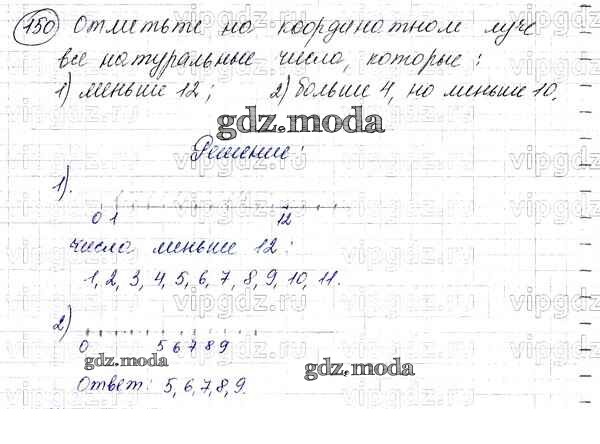 150 Отметьте на координатном луче
все натуральные числа, которые:
1) меньше 12; 2) больше 4, но меньше 10.
gdz.moda
Решение:
1).
0 1 12
числа меньше 12:
1, 2, 3, 4, 5, 6, 7, 8, 9, 10, 11.
2)
0 5 6 7 8 9
gdz.moda
gdz.moda
Ответ: 5, 6, 7, 8, 9.
vipgdz.ru